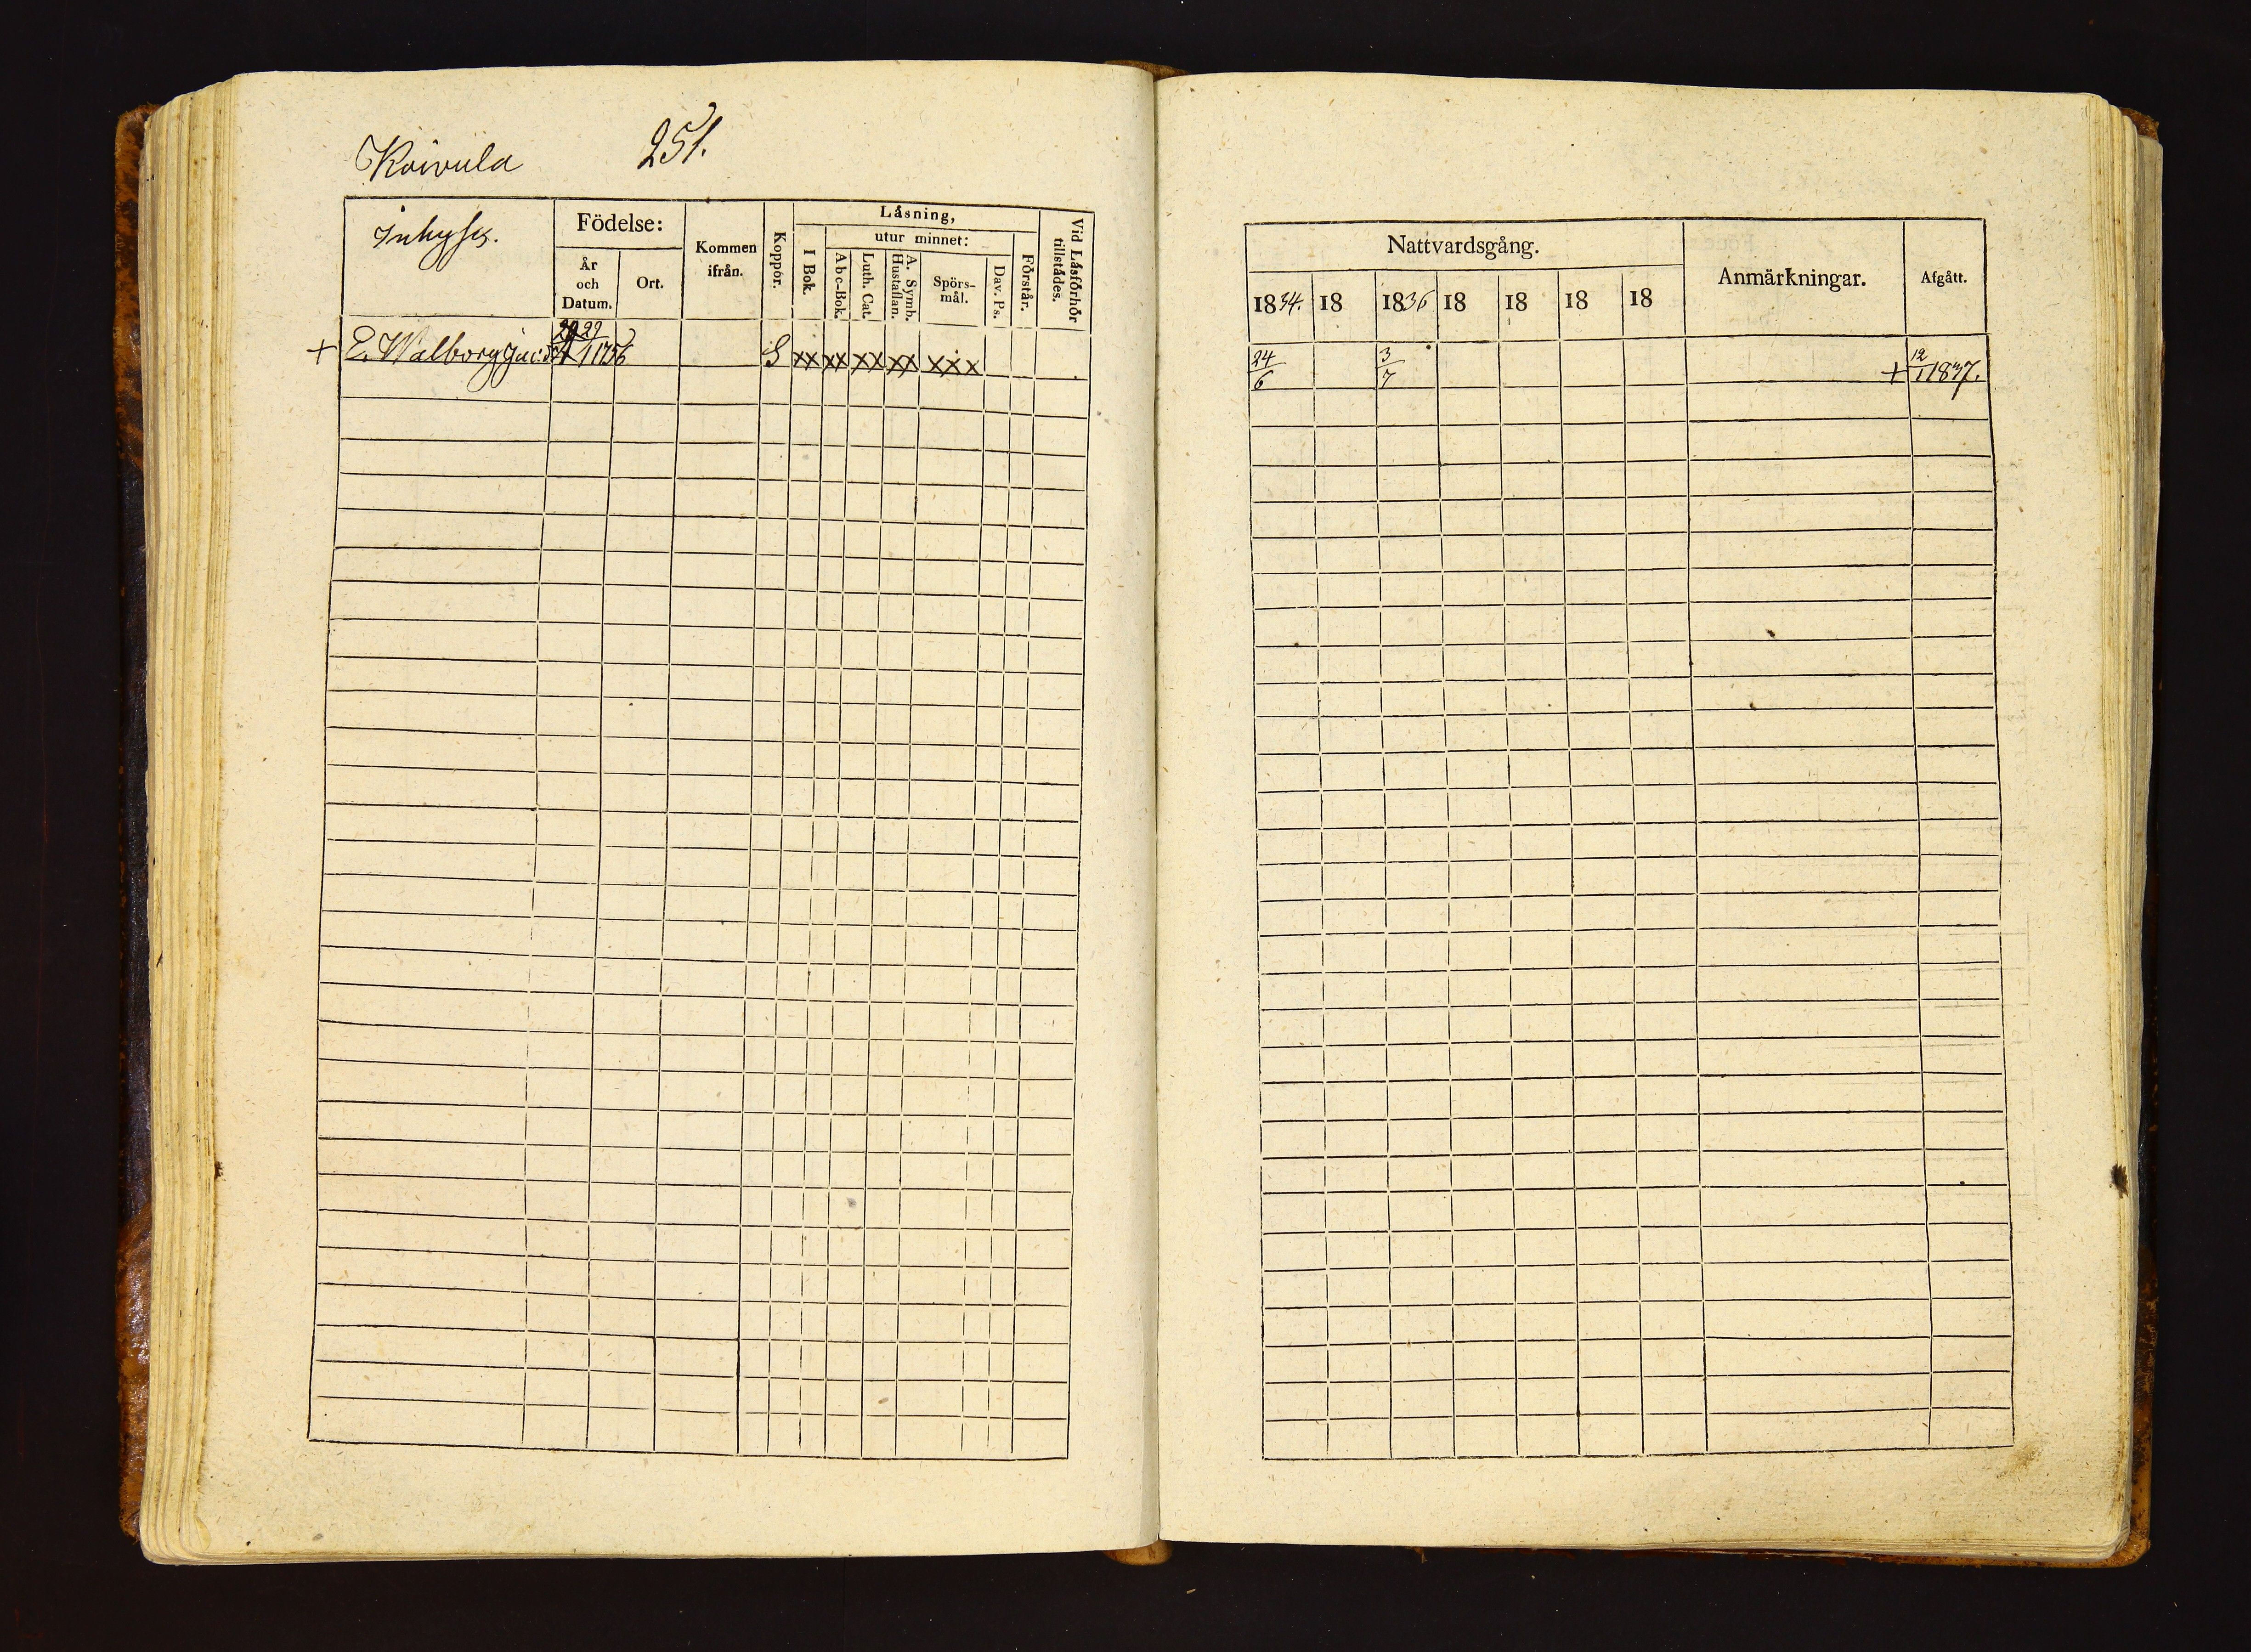 Koivula 251.
Inhyses.
Födelse:
År och Datum.
Ort.
Kommen ifrån.
Koppor.
Låsning,
I Bok.
utur minnet:
Abc-Bok.
Luth. Cat.
A. Symb. Hustaflan.
Spörs-mål.
Dav. Ps.
Förstår.
Vid Låsförhör tillstådes.
+ E. Walborg Jac:dr 29/1 1756 S xx xx xx xx xxx
Nattvardsgång.
Anmärkningar.
Afgått.
1834. 18 1836 18 18 18 18
24/6 3/7 + 12/1 1837.